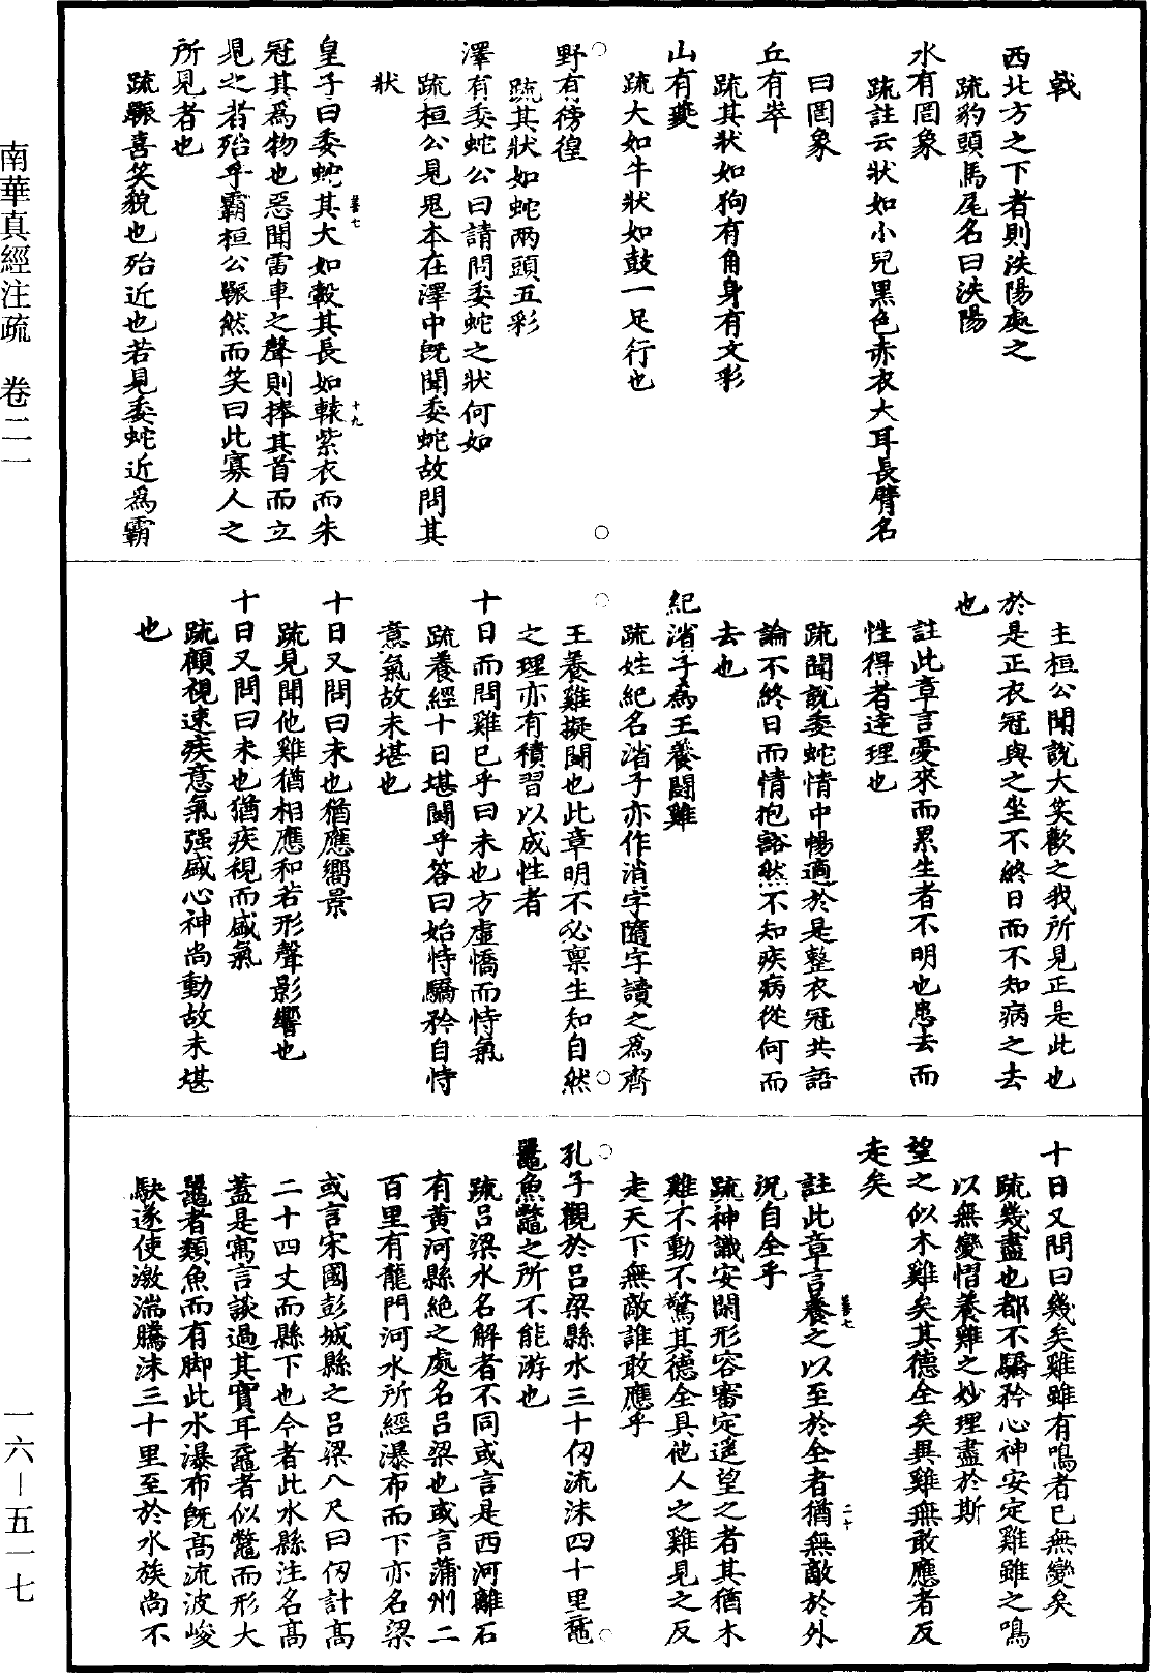 戟
西北方之下者則泆陽處之
疏豹頭馬尾名曰泆陽
水有罔象
疏註云狀如小兒黑色赤衣大耳長臂名
曰罔象
丘有峷
疏其狀如狗有角身有文彩
山有夔
疏大如牛狀如鼓一足行也
野有徬徨
疏其狀如蛇兩頭五彩
澤有委蛇公曰請問委蛇之狀何如
疏桓公見鬼本在澤中既聞委蛇故問其
狀
皇子曰委蛇其大如轂其長如轅紫衣而朱
冠其爲物也惡聞雷車之聲則捧其首而立
見之者殆乎霸桓公辴然而笑曰此寡人之
所見者也
疏辴喜笑貌也殆近也若見委蛇近爲霸
主桓公聞說大笑歡之我所見正是此也
於是正衣冠與之坐不終日而不知病之去
也
註此章言憂來而累生者不明也患去而
性得者達理也
疏聞說委蛇情中暢適於是整衣冠共語
論不終日而情抱豁然不知疾病從何而
去也
紀渻子爲王養鬭雞
疏姓紀名渻子亦作消字隨字讀之爲齊
王養雞擬鬭也此章明不必稟生知自然
之理亦有積習以成性者
十日而問雞已乎曰未也方虛憍而恃氣
疏養經十日堪鬭乎答曰始恃驕矜自恃
意氣故未堪也
十日又問曰未也猶應嚮景
疏見聞他雞猶相應和若形聲影響也
十日又問曰未也猶疾視而盛氣
疏顧視速疾意氣强盛心神尚動故未堪
也
十日又問曰幾矣雞雖有鳴者已無變矣
疏幾盡也都不驕矜心神安定雞雖之鳴
以無變慴養雞之妙理盡於斯
望之似木雞矣其德全矣異雞無敢應者反
走矣
註此章言養之以至於全者猶無敵於外
況自全乎
疏神識安閑形容審定遥望之者其猶木
雞不動不驚其德全具他人之雞見之反
走天下無敵誰敢應乎
孔子觀於呂梁縣水三十仞流沫四十里黿
鼉魚鼈之所不能游也
疏呂梁水名解者不同或言是西河離石
有黃河縣絶之處名呂梁也或言蒲州二
百里有龍門河水所經瀑布而下亦名梁
或言宋國彭城縣之呂梁八尺曰仞計高
二十四丈而縣下也今者此水縣注名高
蓋是寓言談過其實耳黿者似鼈而形大
鼉者類魚而有脚此水瀑布既高流波峻
駃遂使激湍騰沫三十里至於水族尚不
南華真經注疏 卷二一
一六—五一七
善七
十九
善七
二十